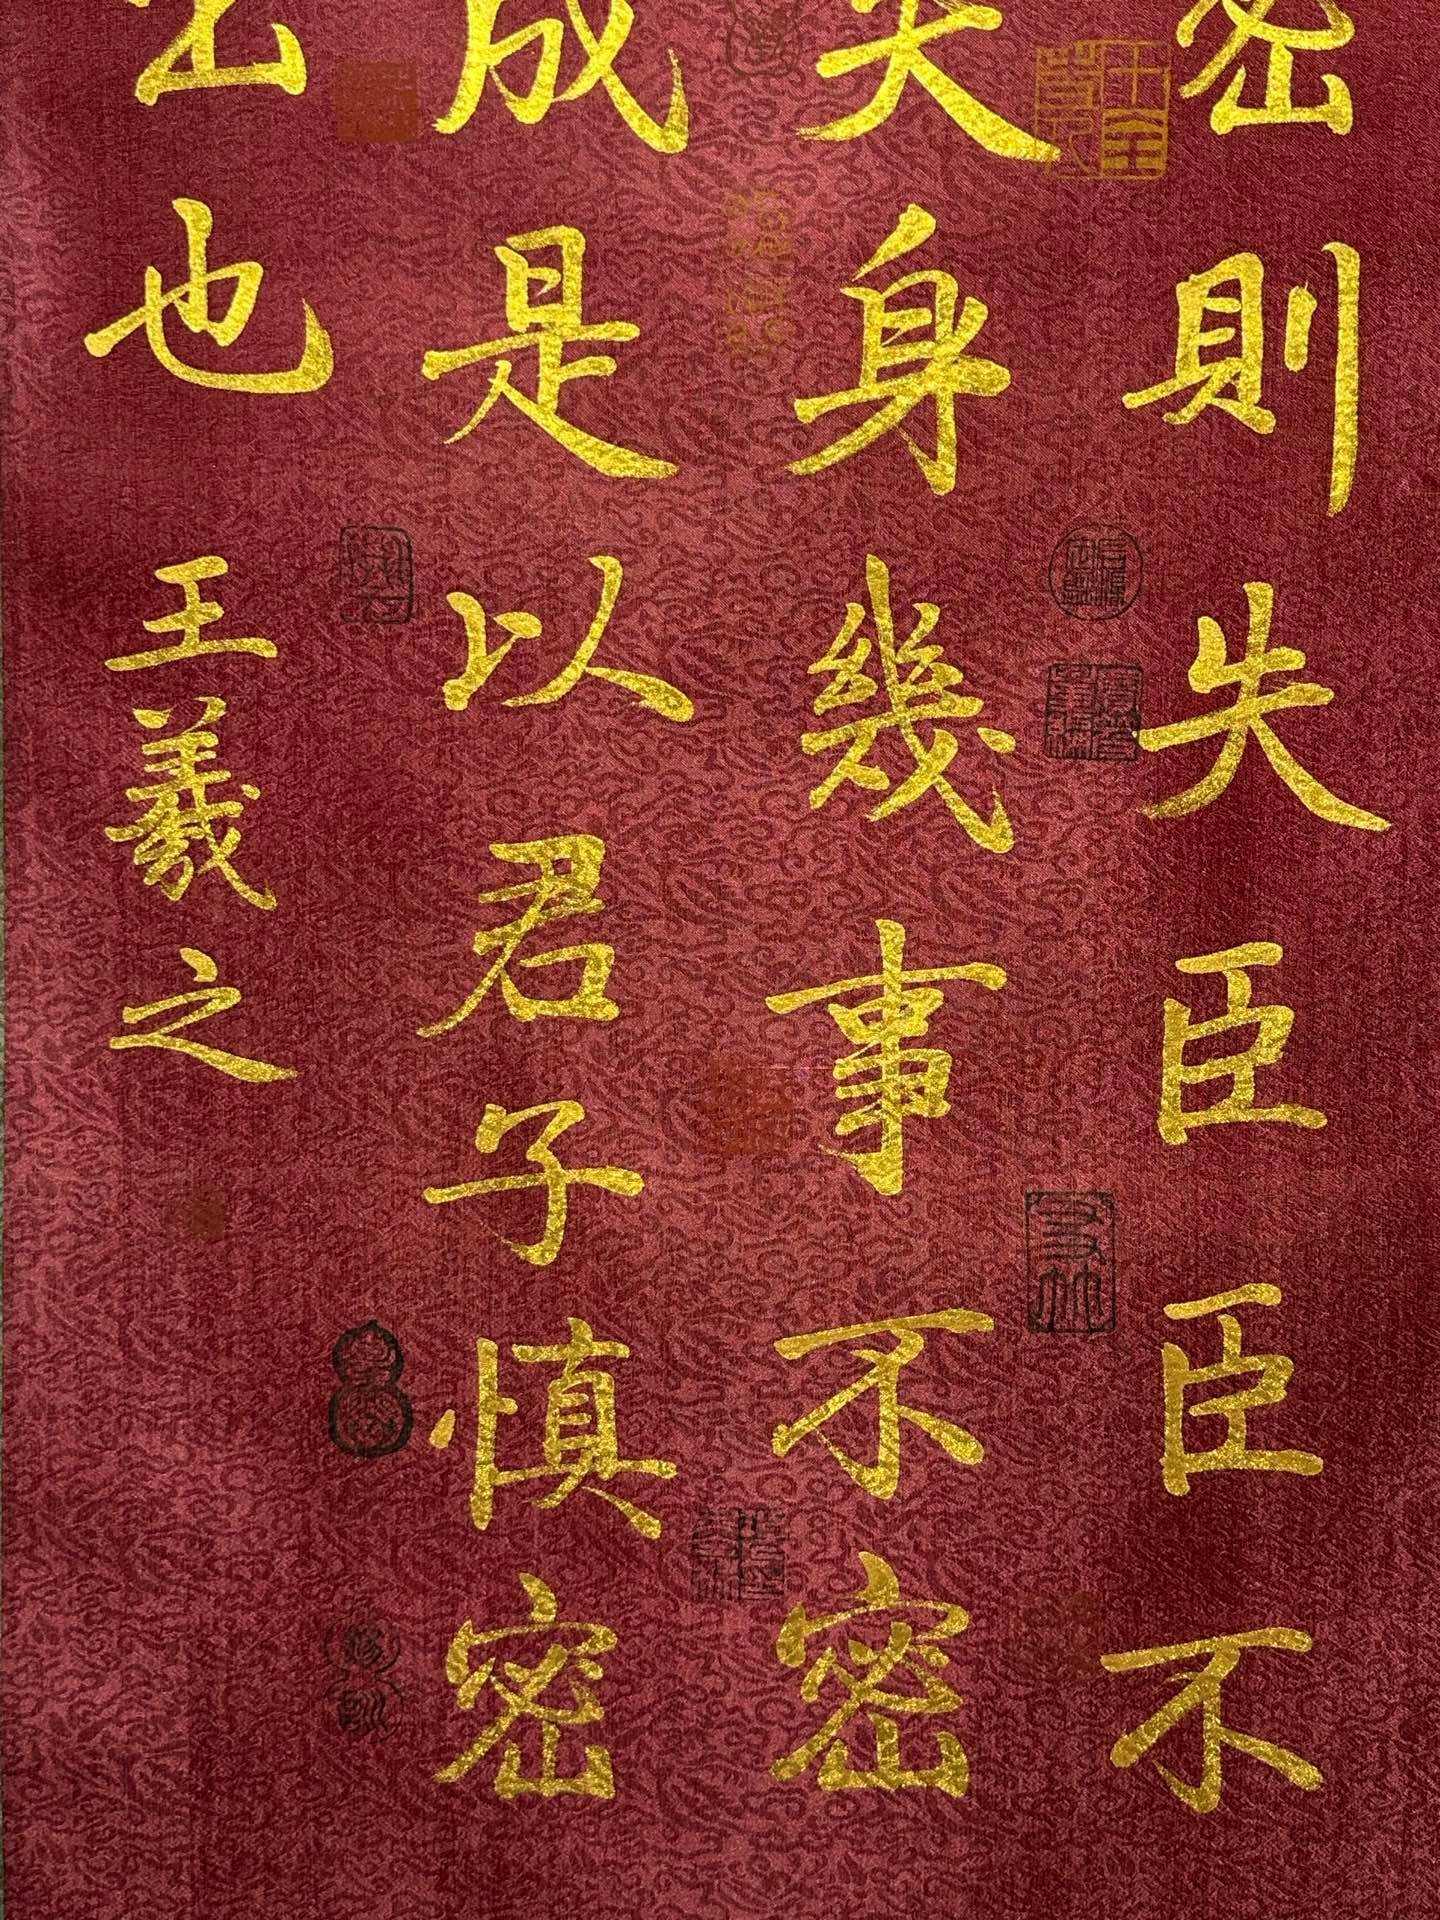 密則失臣臣不
失身幾事不密
成是以君子慎密
出也
王羲之